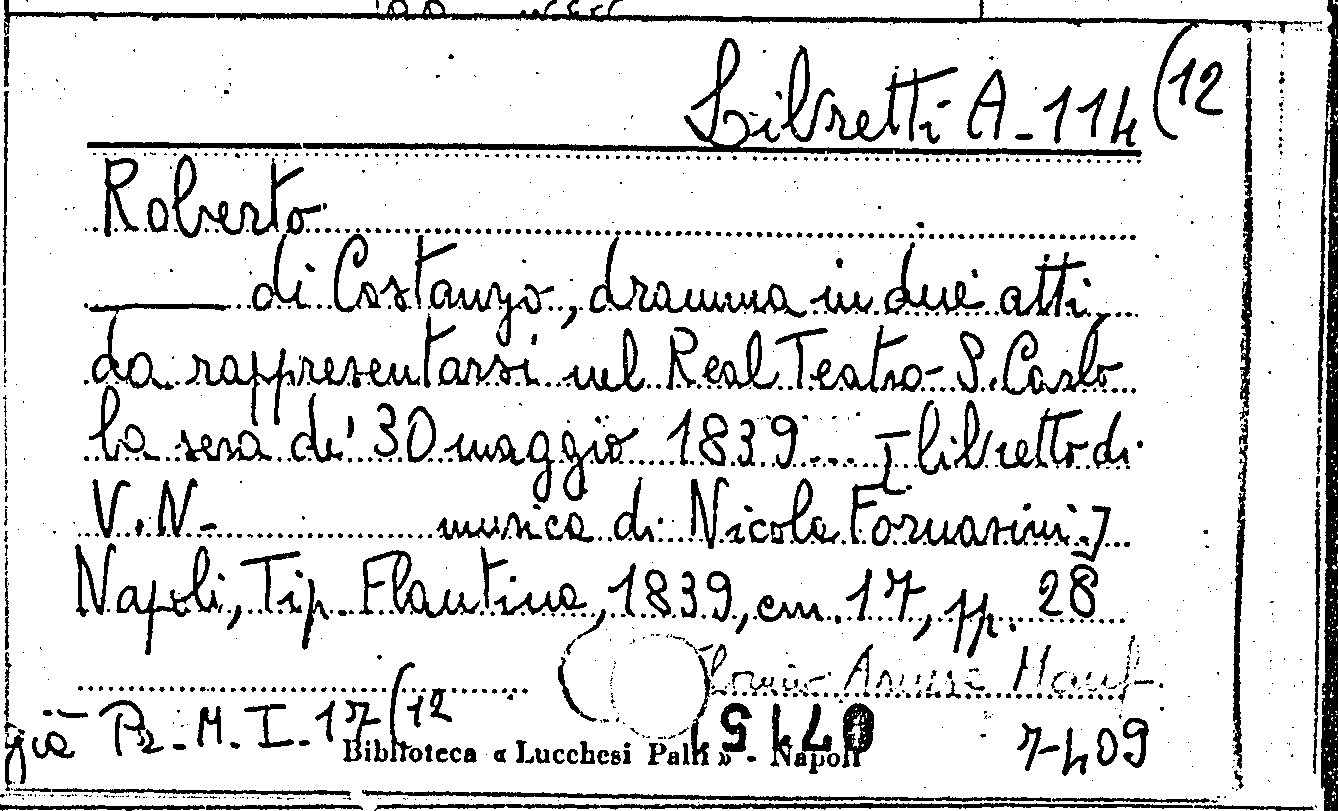 Libretti A-114(12
Roberto
——— di Costanzo, dramma in due atti
da rappresentarsi nel Real Teatro S. Carlo
la sera de' 30 maggio 1839... [libretto di
V. N- musica di Nicola Fornasini.]
Napoli, Tip. Flautina, 1839, cm. 17, pp. 28
già Pz. M. I. 17(12
Biblioteca « Lucchesi Palli » - Napoli
7-409